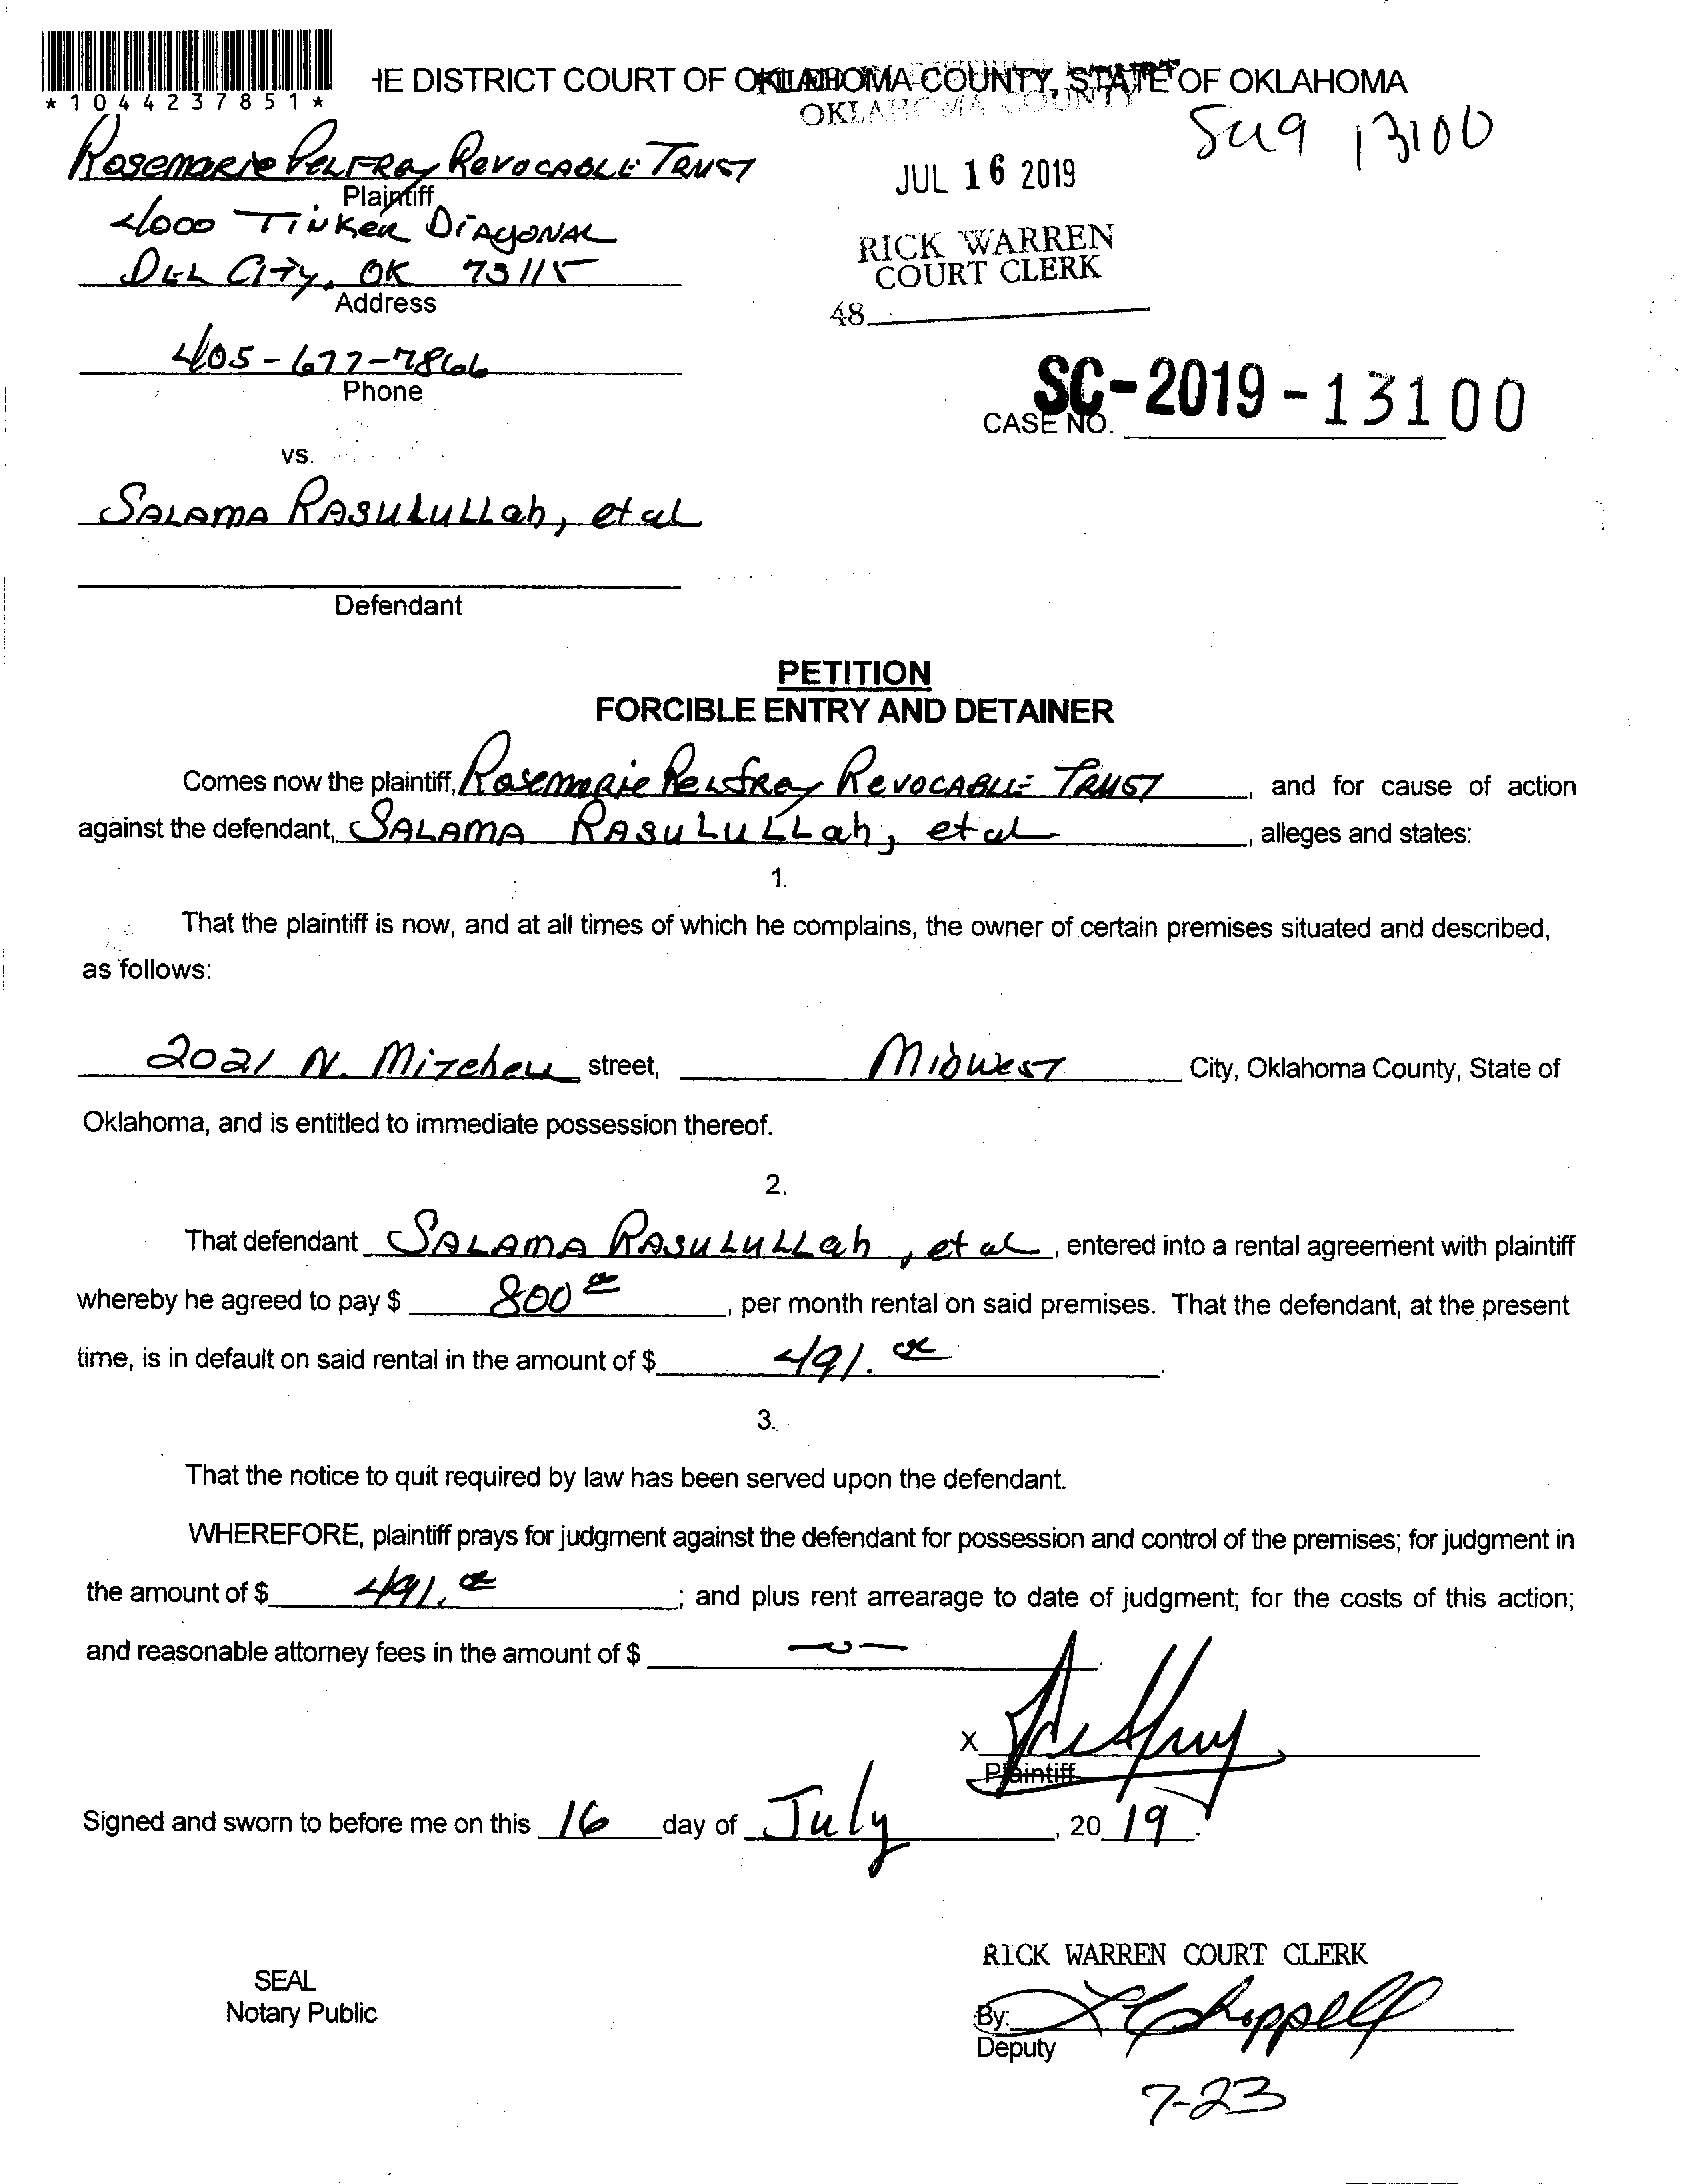 *1044237851*
HE DISTRICT COURT OF OKLAHOMA COUNTY, STATE OF OKLAHOMA
OKLAHOMA COUNTY
13100
Rosemarie Pelfrey Revocable Trust
Plaintiff
JUL 16 2019
4000 Tinker Diagonal
RICK WARREN
COURT CLERK
Del City, OK 73115
Address
48
405-677-7866
Phone
SC-2019-13100
CASE NO.
vs.
Salama Rasulullah, et al
Defendant
PETITION
FORCIBLE ENTRY AND DETAINER
Comes now the plaintiff, Rosemarie Pelfrey Revocable Trust, and for cause of action
against the defendant, Salama Rasulullah, et al, alleges and states:
1.
That the plaintiff is now, and at all times of which he complains, the owner of certain premises situated and described,
as follows:
2021 N. Mitchell street, Midwest City, Oklahoma County, State of
Oklahoma, and is entitled to immediate possession thereof.
2.
That defendant Salama Rasulullah, et al, entered into a rental agreement with plaintiff
whereby he agreed to pay $ 800, per month rental on said premises. That the defendant, at the present
time, is in default on said rental in the amount of $ 491.
3.
That the notice to quit required by law has been served upon the defendant.
WHEREFORE, plaintiff prays for judgment against the defendant for possession and control of the premises; for judgment in
the amount of $ 491. ; and plus rent arrearage to date of judgment; for the costs of this action;
and reasonable attorney fees in the amount of $ -0-
X Pelfrey
Plaintiff
Signed and sworn to before me on this 16 day of July, 2019.
RICK WARREN COURT CLERK
SEAL
Notary Public
By: Chappell
Deputy
7-23